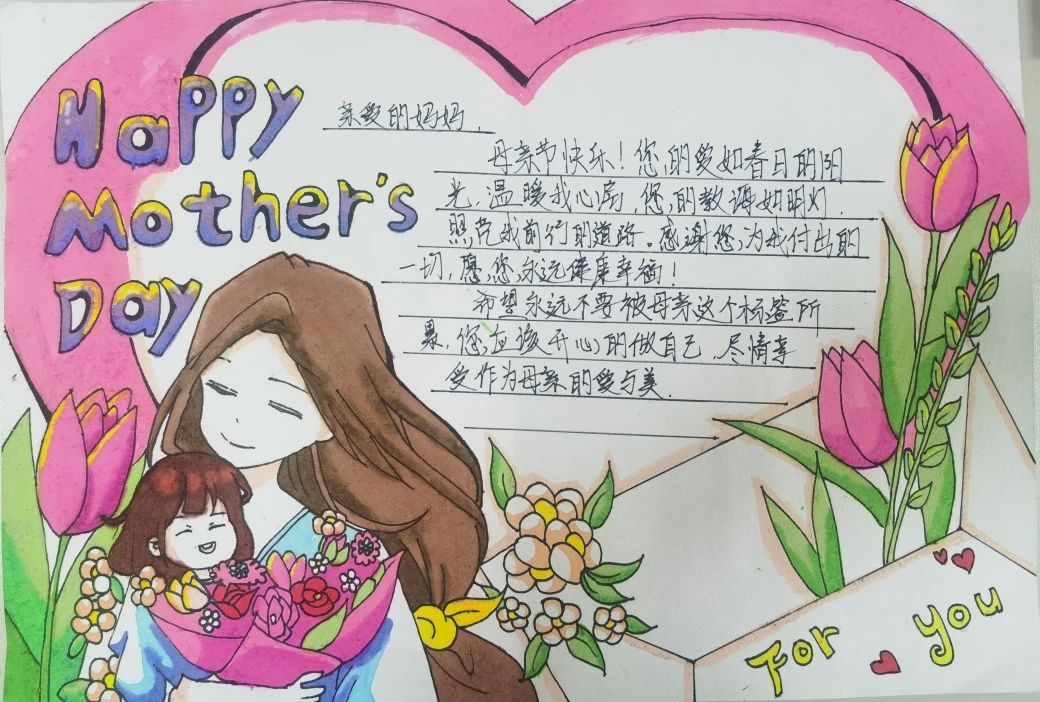 Happy
Mother's
Day
亲爱的妈妈，
母亲节快乐！您的爱如春日的阳
光，温暖我心房，您的教诲如明灯，
照亮我前行的道路。感谢您，为我付出的
一切，愿您永远健康幸福！
希望永远不要被母亲这个标签所
累，您应该开心的做自己，尽情享
受作为母亲的爱与美．
For you